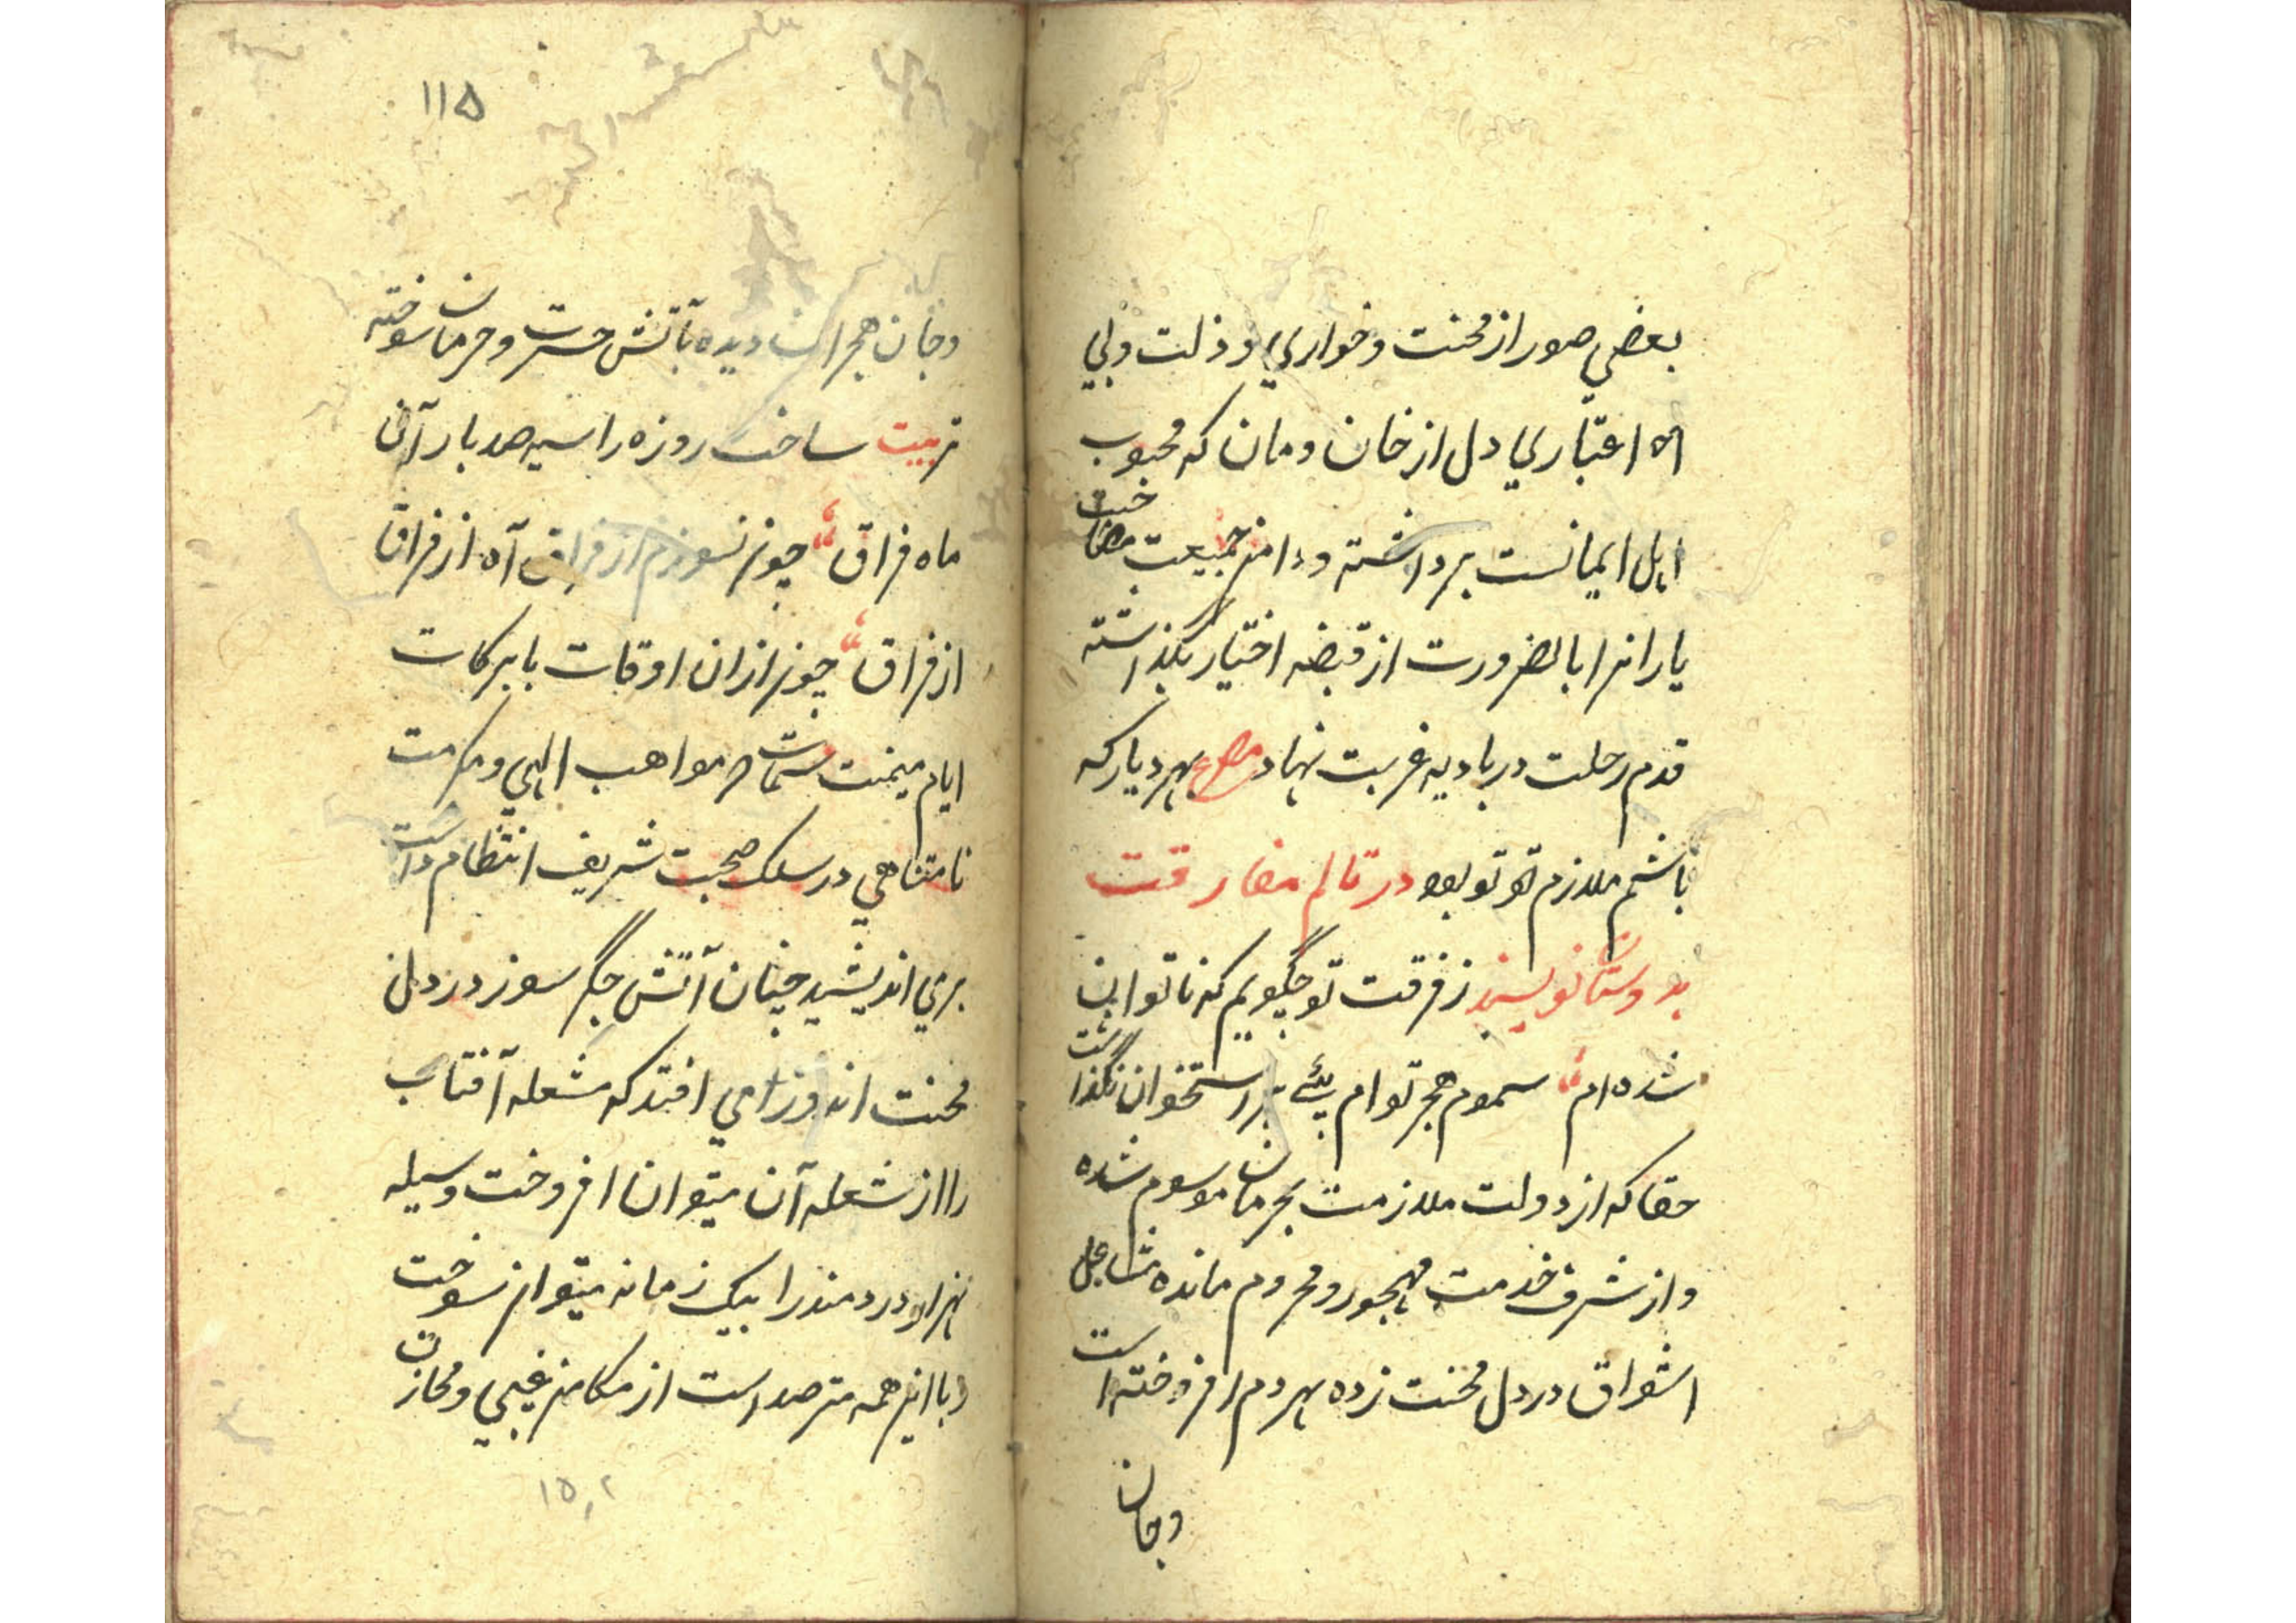 بعضي صور از محنت وخواري و ذلت وبي
اعتباري دل از خان ومان كه محبوب
اهل ايمانست برداشته ودامن جمعيت مصاحبت
يارانرا بالضرورت از قبضه اختيار بگذاشته
قدم رحلت در باديه غربت نهاد مصرع بهر ديار كه
باشم ملازم تو بود در تالم مفارقت
بدوستان نويسند ز فرقت تو چگويم كه ناتوان
شده ام سموم هجر توام در استخوان بگذاشت
حقا كه از دولت ملازمت بحرمان موسوم شده
و از شرف خدمت مهجور و محروم مانده مشاعل
اشواق در دل محنت زده بهر دم افروخته است
وجان
١١۵
وجان هجران ديده بآتش حسرت و حرمان سوخته
تربيت ساخت روزه را سيصد بار آن
ماه فراق چون نسوزم از فراق آه از فراق
از فراق چون از ان اوقات با بركات
ايام ميمنت سمات مواهب الهي و مكرمت
نامتناهي در سلك صحبت شريف انتظام داشت
بري انديشيد چنان آتش جگر سوز در دل
محنت اندوز مي افتد كه مشعله آفتاب
را از شعله آن ميتوان افروخت وسيله
هزار درد مند را بيك زمانه ميتوان سوخت
با اين همه مترصد است از مكامن غيبي و مخازن